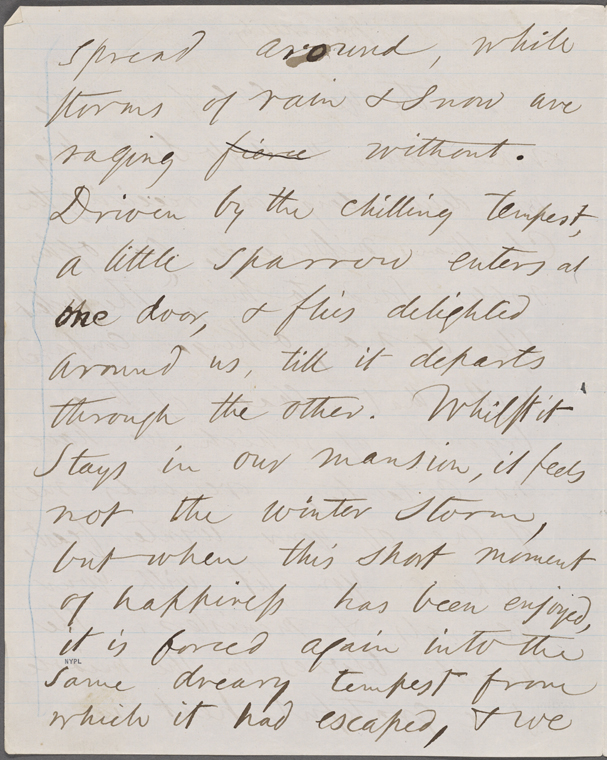 spread around, while
storms of rain & Snow are
raging fierce without.
Driven by the chilling tempest,
a little Sparrow enters at
one door, & flies delighted
around us, till it departs
through the other. Whilst it
Stays in our mansion, it feels
not the winter storm,
but when this short moment
of happiness has been enjoyed,
it is forced again into the
NYPL
Same dreary tempest from
which it had escaped, & we